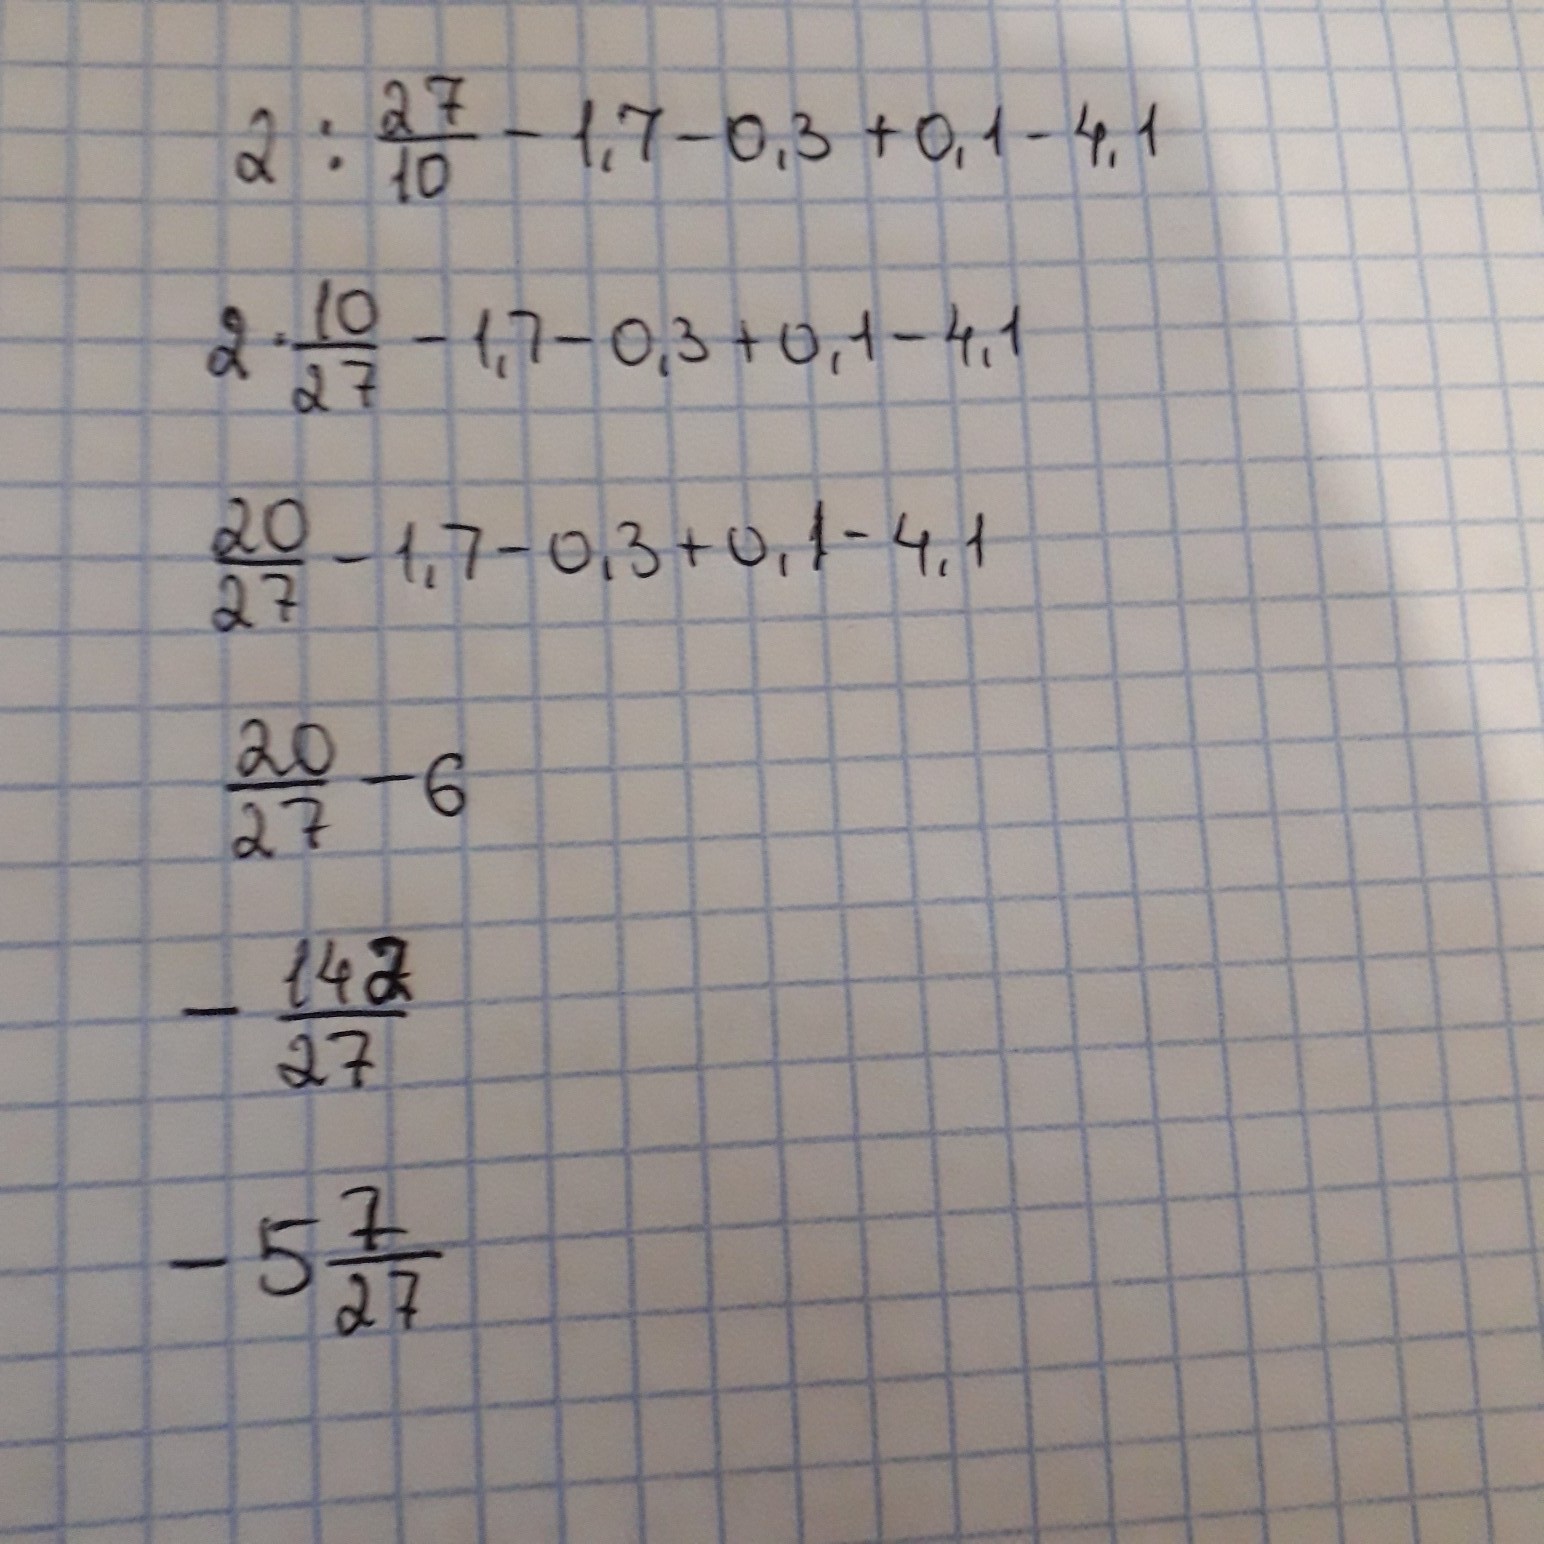 2 : 27/10 - 1,7 - 0,3 + 0,1 - 4,1
2 · 10/27 - 1,7 - 0,3 + 0,1 - 4,1
20/27 - 1,7 - 0,3 + 0,1 - 4,1
20/27 - 6
- 142/27
- 5 7/27